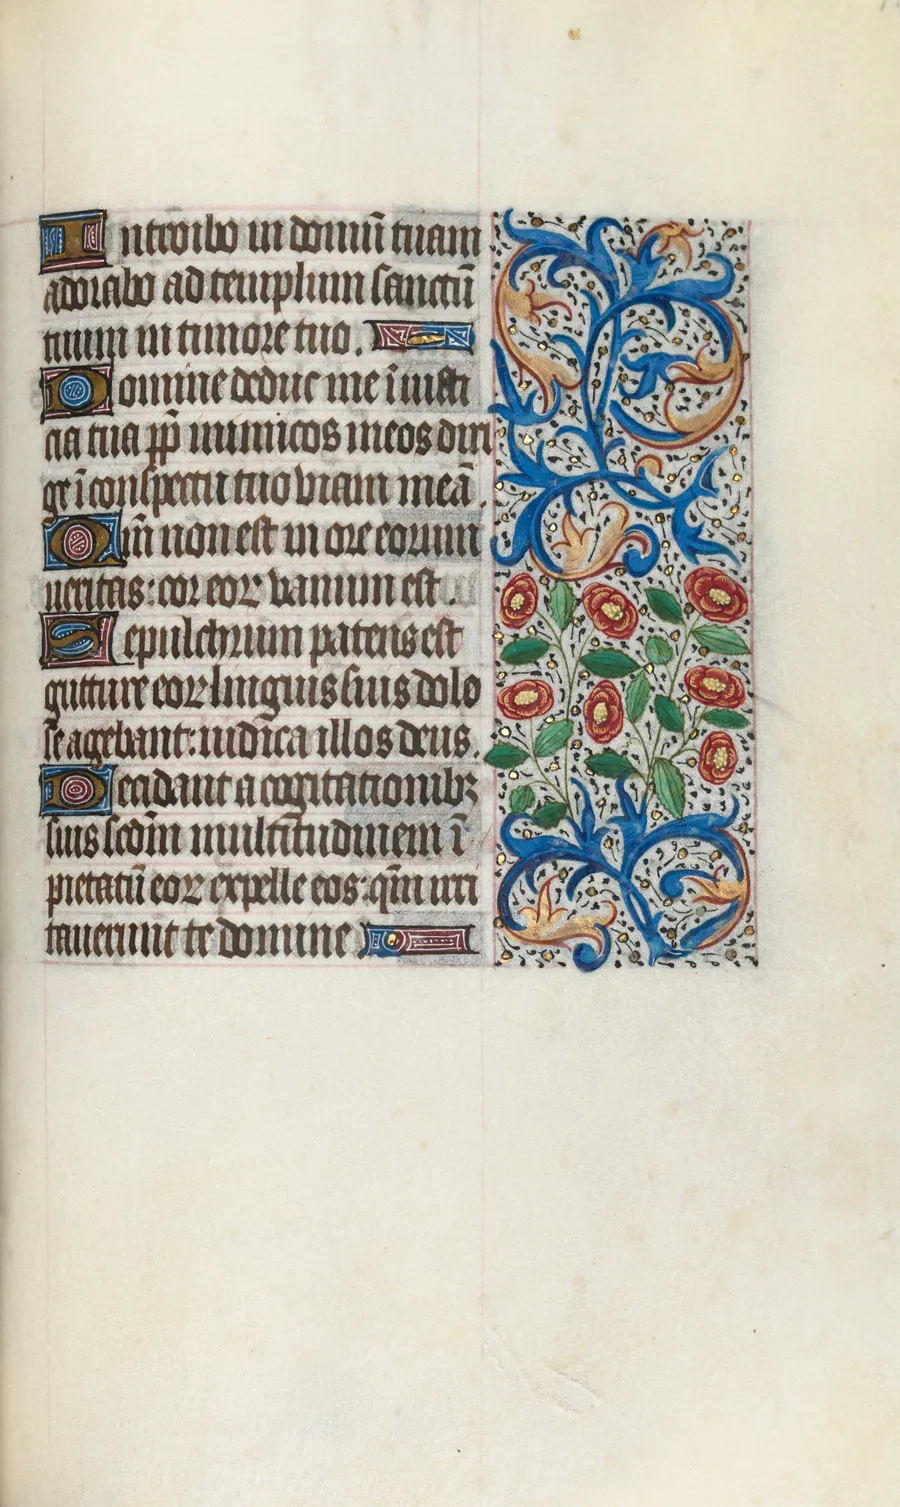 Introibo in domū tuam
adorabo ad templum sanctū
tuum in timore tuo.
Domine deduc me ī iusti
cia tua pp̄ inimicos meos diri
ge ī conspectu tuo viam meā.
Qm̄ non est in ore eorum
veritas: cor eoꝝ vanum est.
Sepulchrum patens est
guttur eoꝝ linguis suis dolo
se agebant: iudica illos deus.
Decidant a cogitationibꝫ
suis scdm̄ multitudinem ī
pietatū eoꝝ expelle eos: qm̄ irri
tauerunt te domine